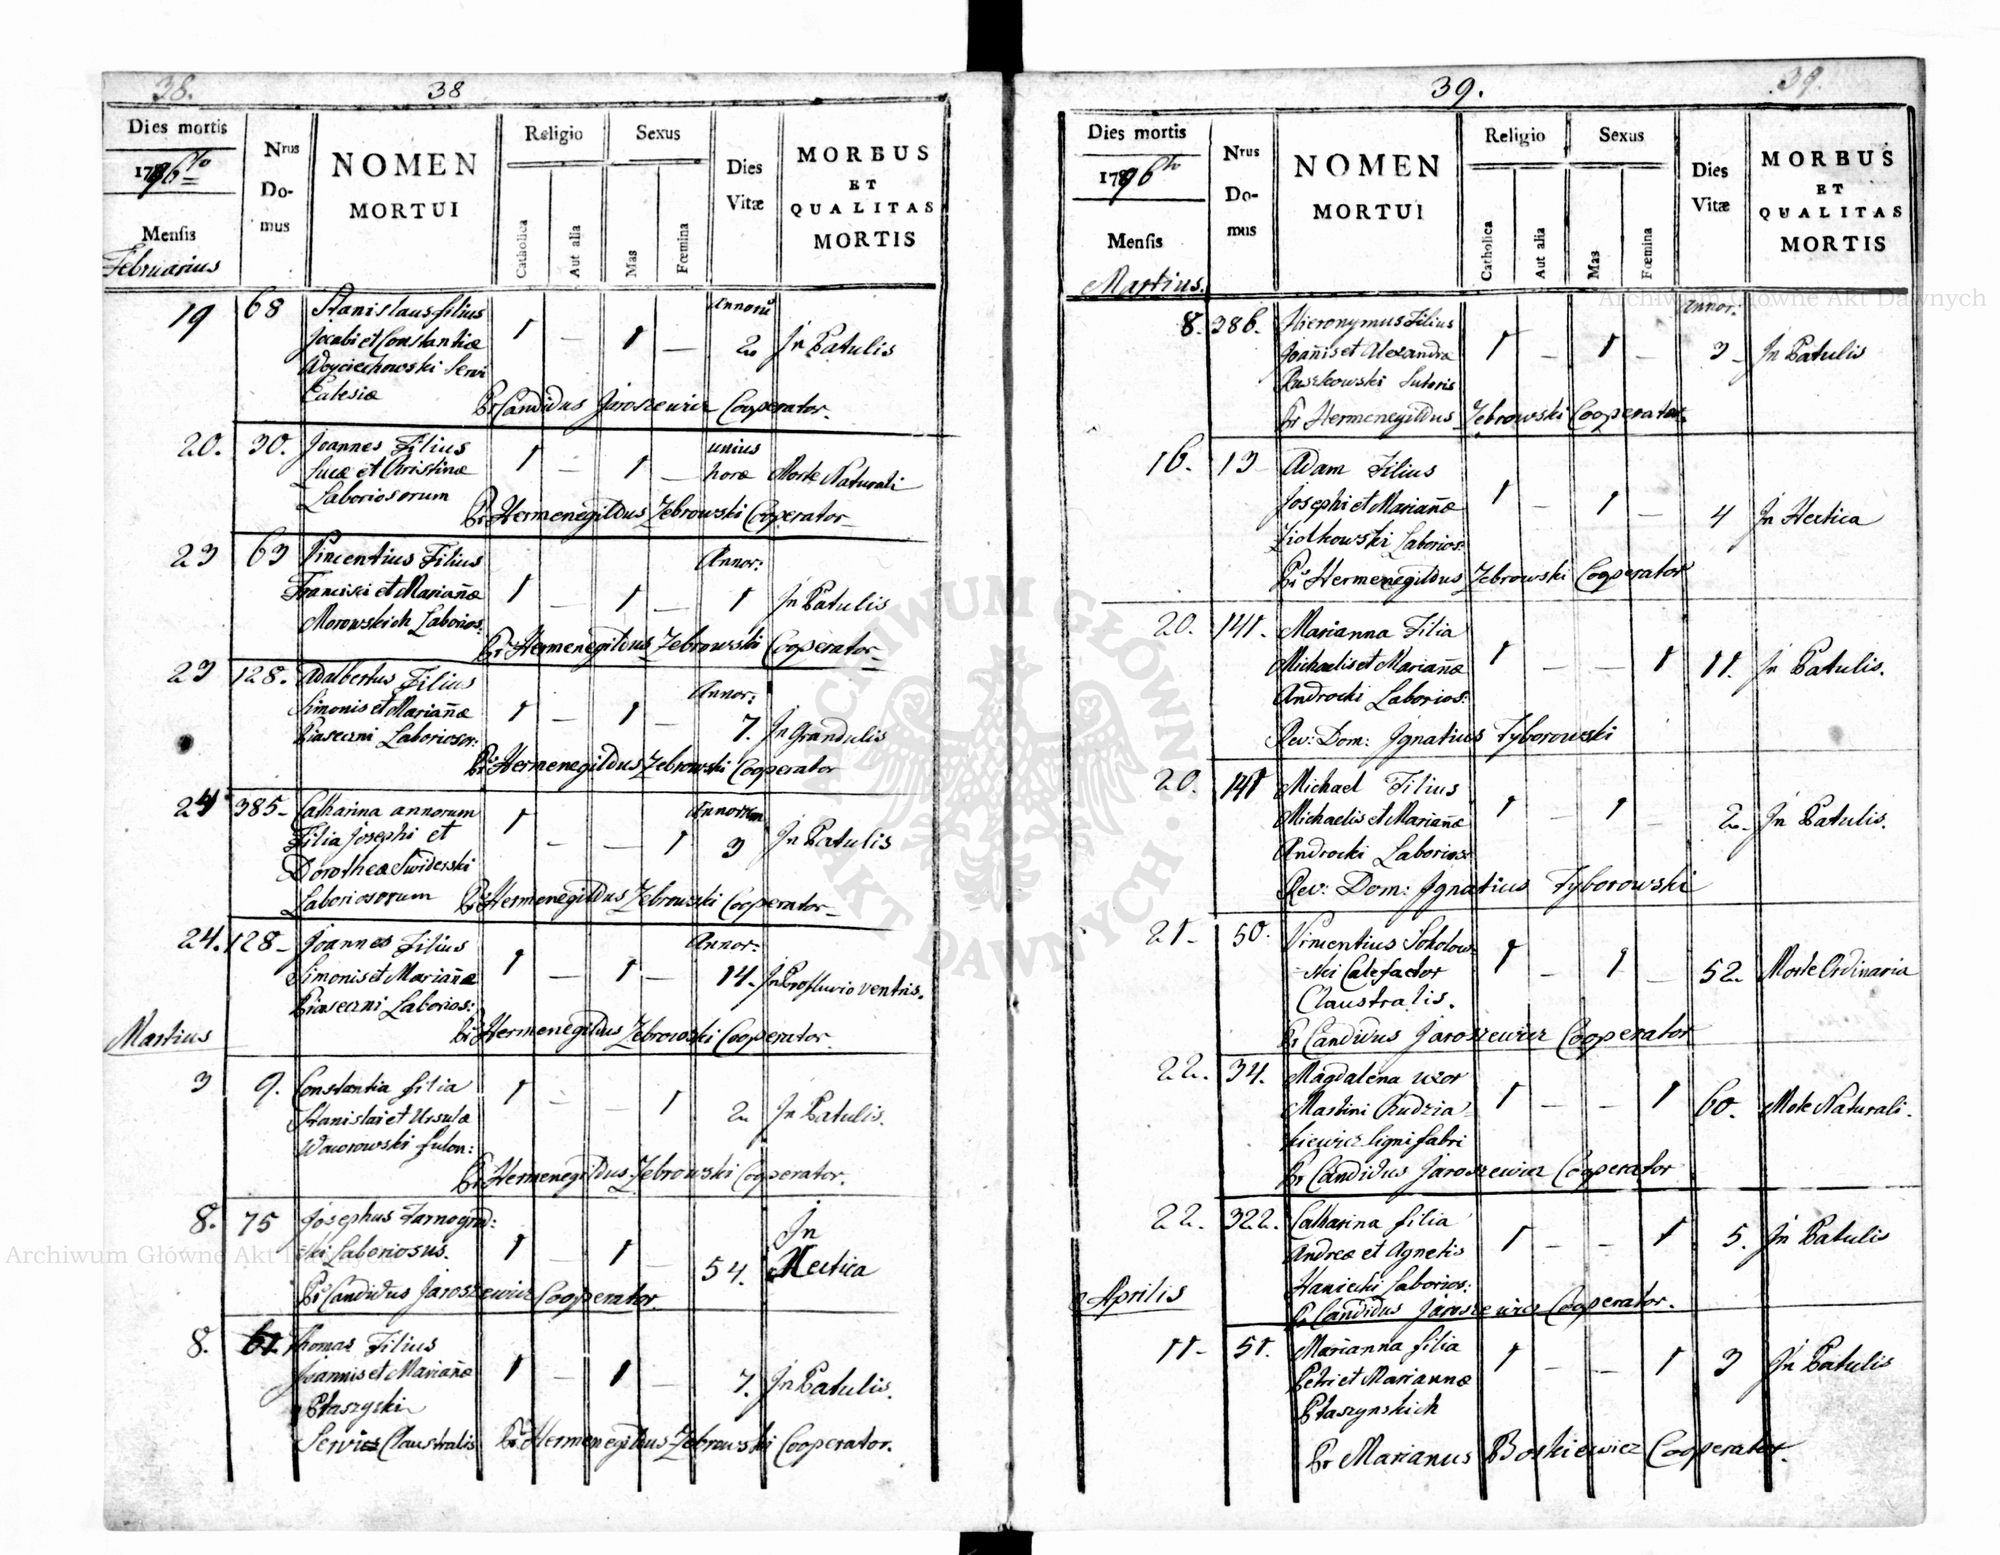 38. 38
Dies mortis
1796to
Mensis
Februarius
Nrus Domus
NOMEN MORTUI
Religio
Catholica
Aut alia
Sexus
Mas
Fœmina
Dies Vitæ
MORBUS ET QUALITAS MORTIS
19 68 Stanislaus filius 1 — 1 — Annorũ
Jacobi et Constantiæ 2 In Patulis
Woyciechowski Servi
Eclesiæ Pr Candidus Jaroszewicz Cooperator.
20. 30. Joannes Filius 1 — 1 — unius
Lucæ et Cristinæ horæ Morte Naturali
Laboriosorum Pr Hermenegildus Zebrowski Cooperator
23 63 Vincentius Filius Annor:
Francisci et Mariañæ 1 — 1 — 1 In Patulis
Morowskich Laborios:
Pr Hermenegildus Zebrowski Cooperator
23 128. Adalbertus Filius Annor:
Simonis et Mariañæ 1 — 1 — 7. In Grandulis
Piaseczni Laborioson:
Pr Hermenegildus Zebrowski Cooperator
24 385 Catharina annorum 1 — — 1 Annorum
Filia Josephi et 3 In Patulis
Dorotheæ Swiderski
Laboriosorum Pr Hermenegildus Zebrowski Cooperator
24. 128 Joannes Filius Annor:
Simonis et Mariañæ 1 — 1 — 14. In Profluvio ventris.
Piaseczni Laborios:
Pr Hermenegildus Zebrowski Cooperator.
Martius
3 9. Constantia filia 1 — — 1
Stanislai et Ursulæ 2 In Patulis.
Waworowski
Pr Hermenegildus Zebrowski Cooperator.
8. 75 Josephus Tarnogrod: In
ski Laboriosus. 1 — 1 — 54. Hectica
Pr Candidus Jaroszewicz Cooperator
8. 61. Thomas Filius
Joannis et Mariañæ 1 — 1 — 7. In Patulis.
Ptaszyski
Servi Claustralis Pr Hermenegildus Zebrowski Cooperator.
39. 39.
Dies mortis
1796to
Mensis
Martius.
Nrus Domus
NOMEN MORTUI
Religio
Catholica
Aut alia
Sexus
Mas
Fœmina
Dies Vitæ
MORBUS ET QUALITAS MORTIS
8. 386. Hieronymus Filius Annor:
Joañis et Alexandræ 1 — 1 — 3 In Patulis
Ruszkowski Sutoris
Pr Hermenegildus Zebrowski Cooperator
16. 13 Adam Filius
Josephi et Mariañæ 1 — 1 — 4 In Hectica
Ziolkowski Laborios:
Pr Hermenegildus Zebrowski Cooperator
20. 141. Marianna Filia
Michaelis et Mariañæ 1 — — 1 11. In Patulis.
Androcki Laborios:
Rev: Dom: Ignatius Tyborowski
20. 141 Michael Filius
Michaelis et Mariañæ 1 — 1 — 2 In Patulis.
Androcki Laborios:
Rev: Dom: Ignatius Tyborowski
21 50. Vincentius Sokolow-
ski Calefactor 1 — 1 — 52 Morte Ordinaria
Claustralis.
Pr Candidus Jaroszewicz Cooperator
22. 34. Magdalena uxor
Martini Rudzia 1 — — 1 60. Mote Naturali.
kiewicz ligni fabri
Pr Candidus Jaroszewicz Cooperator
22. 322. Catharina filia
Andreæ et Agnetis 1 — — 1 5. In Patulis
Haniecki Laborios:
Pr Candidus Jaroszewicz Cooperator.
Aprilis
11 51. Mariañna filia
Petri et Mariannæ 1 — — 1 3 In Patulis
Ptaszynskich
Pr Marianus Boskiewicz Cooperator.
Archiwum Główne Akt Dawnych
Archiwum Główne Akt Dawnych
ARCHIWUM GŁÓWNE AKT DAWNYCH